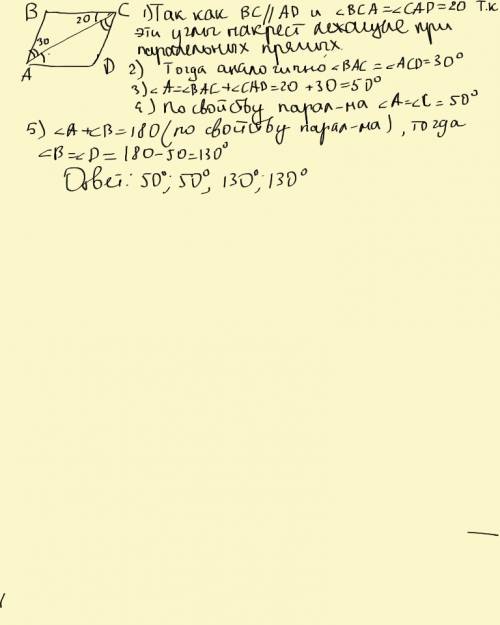 B
C
20
30
A
D
1) Так как BC // AD и ∠BCA = ∠CAD = 20 т.к
эти углы накрест лежащие при
паралельных прямых.
2) Тогда аналогично ∠BAC = ∠ACD = 30°
3) ∠A = ∠BAC + ∠CAD = 20 + 30 = 50°
4) По свойству парал-ма ∠A = ∠C = 50°
5) ∠A + ∠B = 180 (по свойству парал-ма), тогда
∠B = ∠D = 180 - 50 = 130°
Ответ: 50°; 50°; 130°; 130°